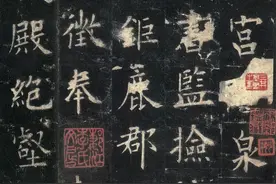 宮泉
書監撿
鉅鹿郡
徵奉
殿絕壑